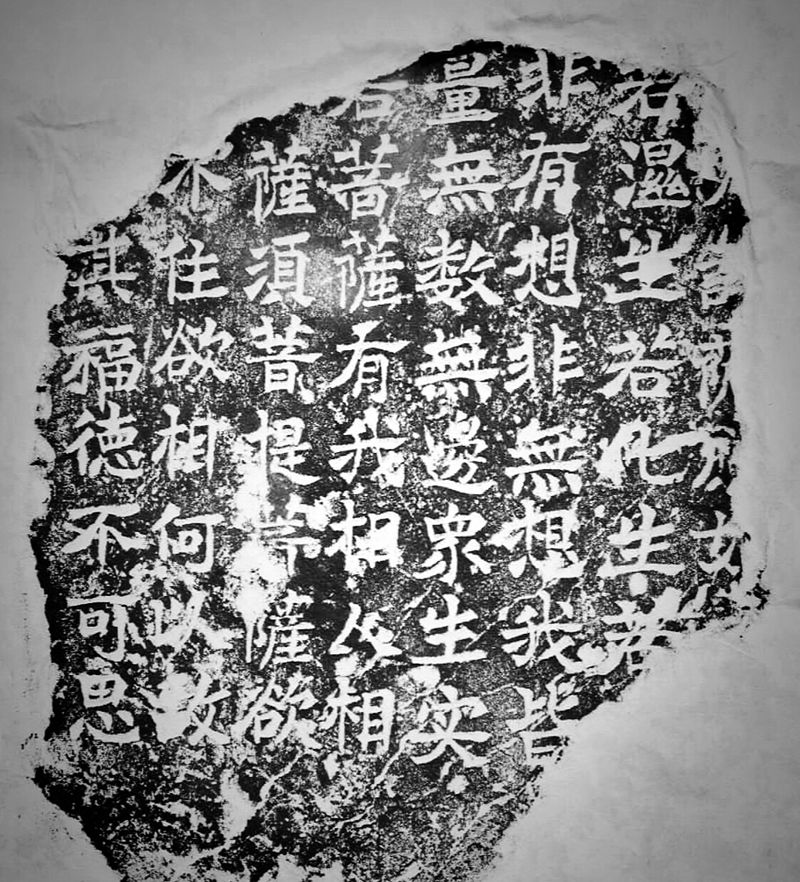 若濕生若化生若
非有想非無想我皆
量無數無邊衆生实
若菩薩有我相人相
薩須菩提菩薩欲
不住欲相何以故
其福德不可思